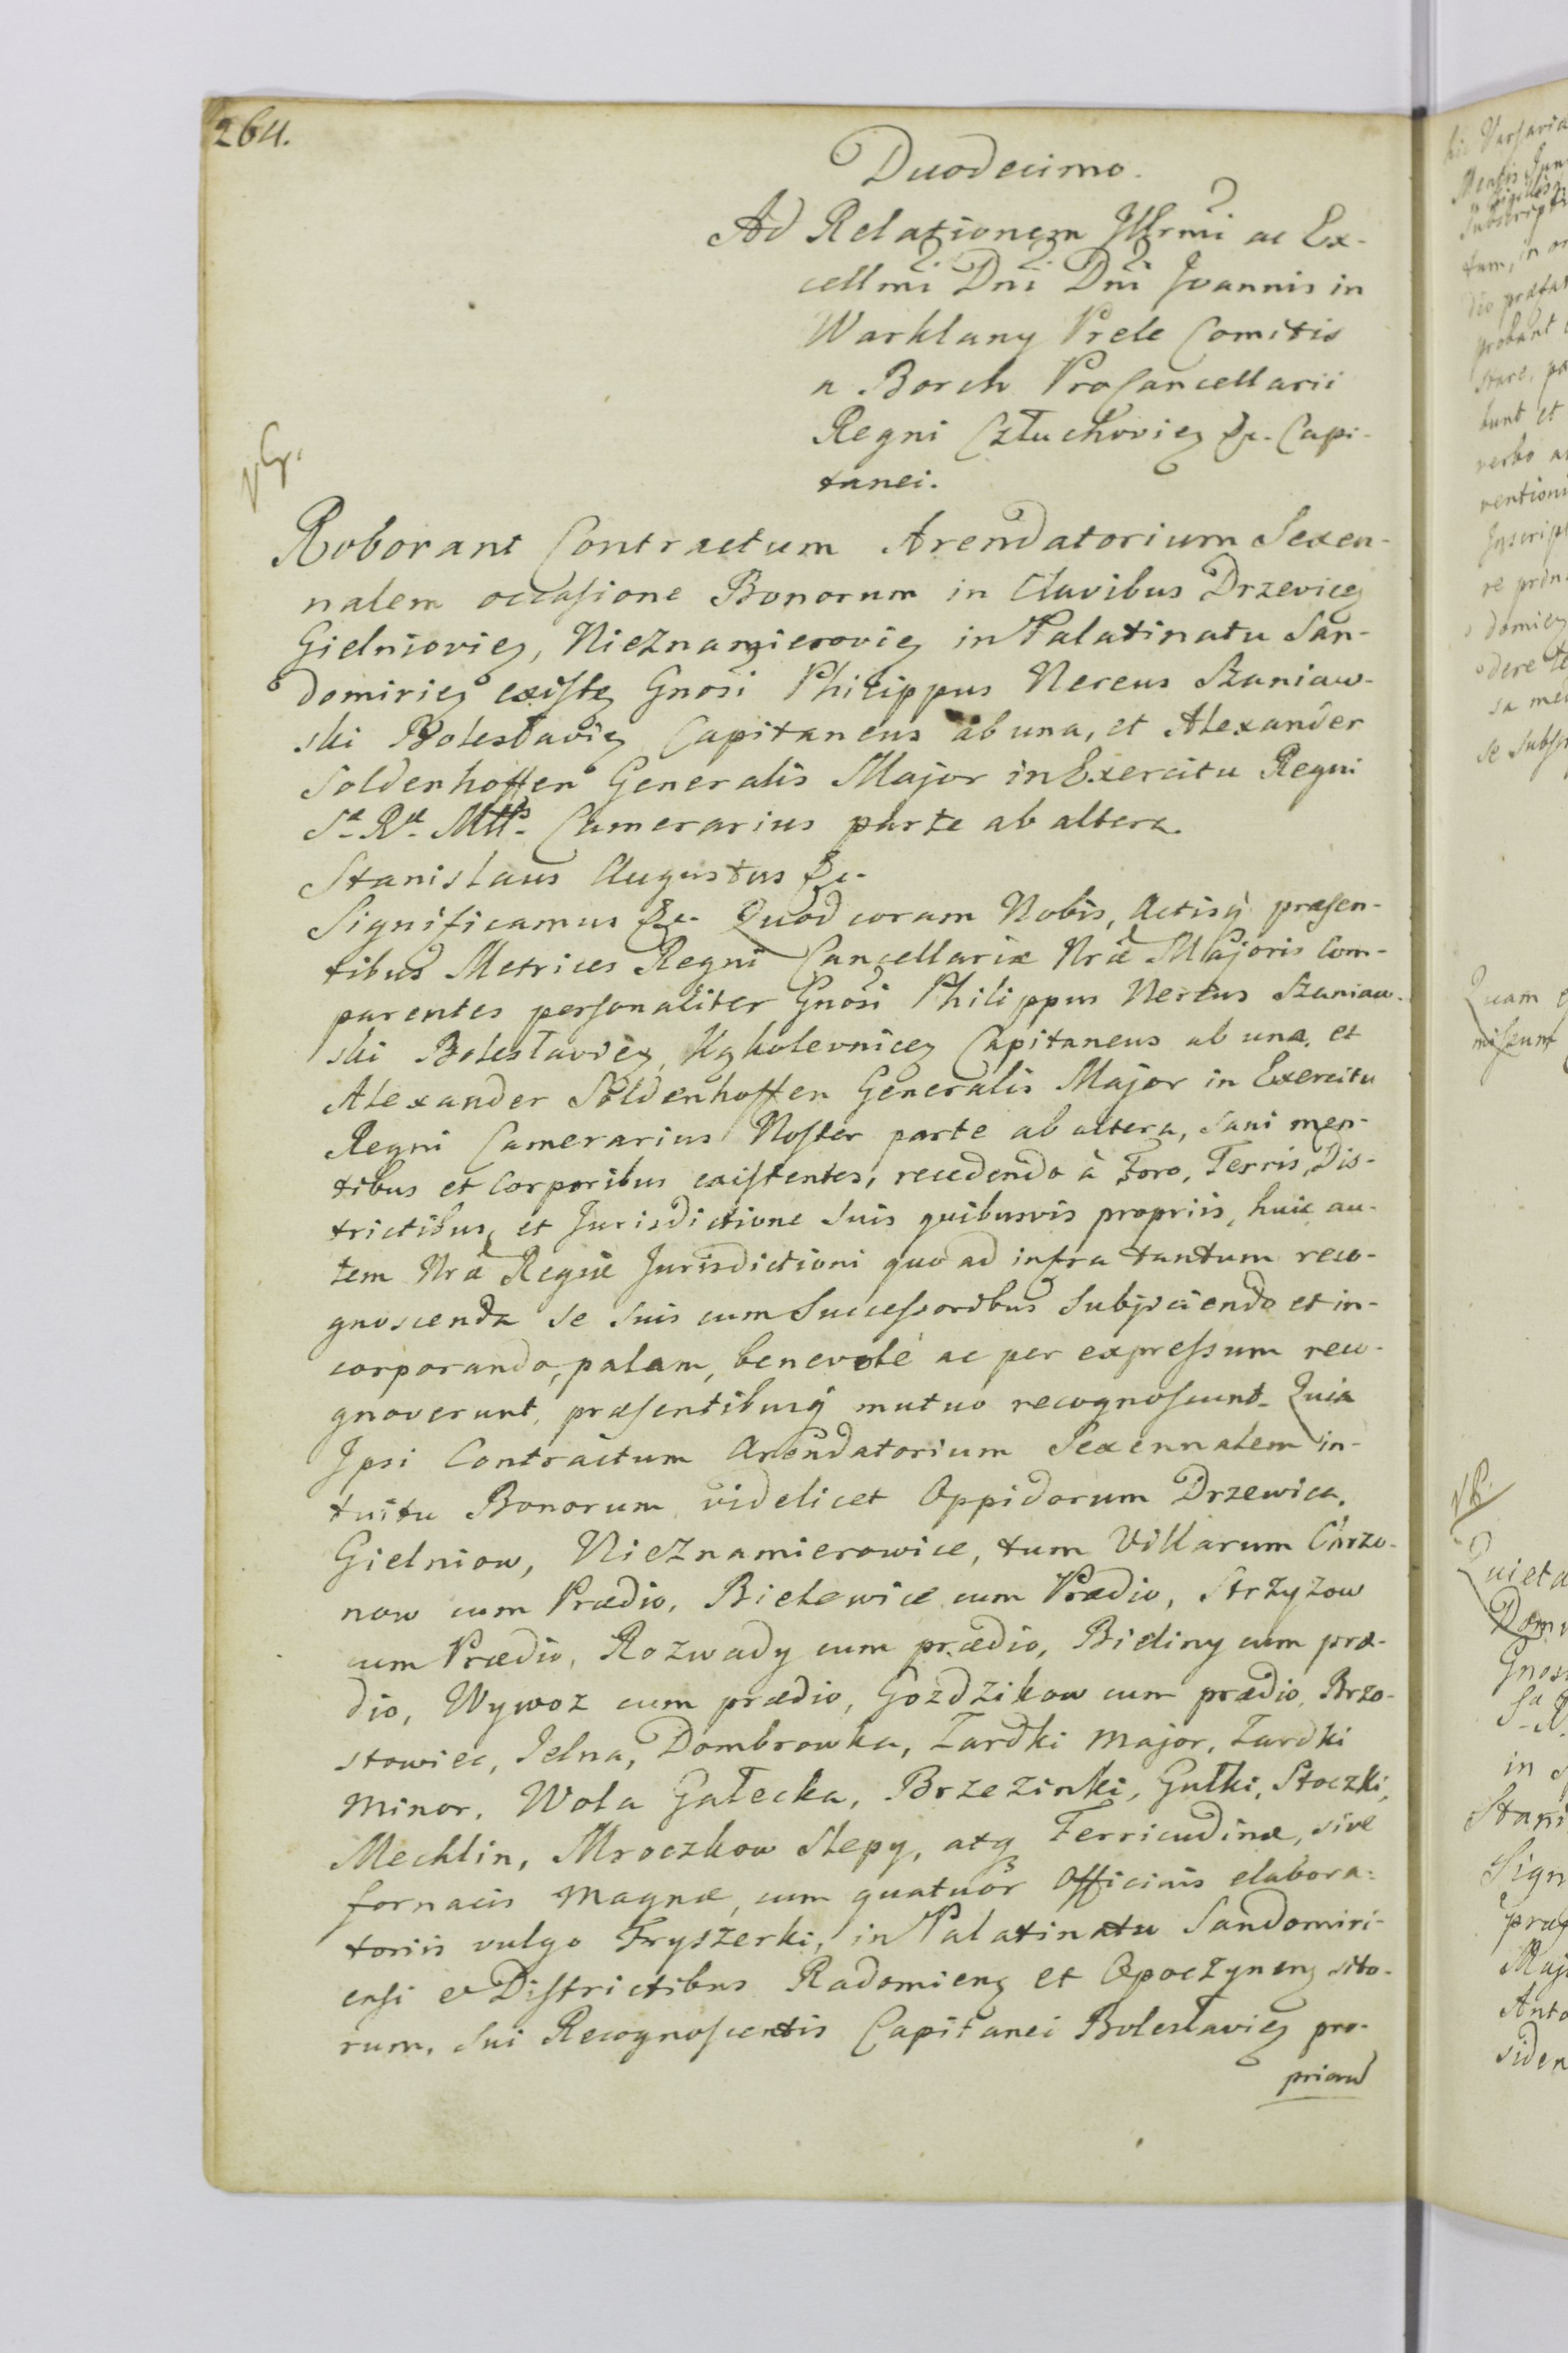 264.
Duodecimo.
Ad Relationem Illrmi ac Ex-
cellmi Dni Dni Joannis in
Warklany Prele Comitis
a Borch ProCancellarii
Regni Człuchovieȝ &c. Capi-
tanei.
Roborant Contractum Arendatorium Sexen-
nalem occasione Bonorum in Clavibus Drzeviceȝ
Gielniovieȝ, Nieznamierovieȝ in Palatinatu San-
domirieȝ existeȝ Gnosi Philippus Nereus Szaniaw-
ski Bolesłavieȝ Capitaneus ab una, et Alexander
Soldenhoffen Generalis Major in Exercitu Regni
Sæ Ræ Mttis Camerarius parte ab altera.
Stanislaus Augustus &c.
Significamus &c. Quod coram Nobis, Actisq̃ præsen-
tibus Metrices Regni Cancellariæ Nræ Majoris Com-
parentes personaliter Gnosi Philippus Nereus Szaniaw-
ski Bolesłavieȝ, Kąkolevniceȝ Capitaneus ab una, et
Alexander Soldenhoffen Generalis Major in Exercitu
Regni Camerarius Noster parte ab altera, Sani men-
tibus et Corporibus existentes, recedendo à Foro, Terris, Dis-
trictibus, et Jurisdictione Suis quibusvis propriis, huic au-
tem Nræ Regiæ Jurisdictioni quo ad infra tantum reco-
gnoscenda se suis cum Successoribus Subjiciendo et in-
corporando, palam, benevole ac per expressum reco-
gnoverunt, præsentibusq̃ mutuo recognoscunt. Quia
Ipsi Contractum Arendatorium Sexennalem in-
tuitu Bonorum videlicet Oppidorum Drzewica,
Gielniow, Nieznamierowice, tum Villarum Chrzo-
now cum Prædio, Bielewice cum Prædio, Strzyzow
cum Prædio, Rozwady cum prædio, Bieliny cum præ-
dio, Wywoz cum prædio, Gozdzikow cum prædio, Brzo-
stowiec, Jelna, Dombrowka, Zardki major, Zardki
minor, Wola Gałecka, Brzezinki, Gułki, Stoczki,
Mechlin, Mroczkow Slepy, atqȝ Ferricudinæ, sive
fornacis magnæ, cum quatuor Officinis elabora-
toriis vulgo Fryszerki, in Palatinatu Sandomiri-
ensi et Districtibus Radomienȝ et Opoczynenȝ sito-
rum, Sui Recognoscentis Capitanei Bolesłavieȝ pro-
priorū